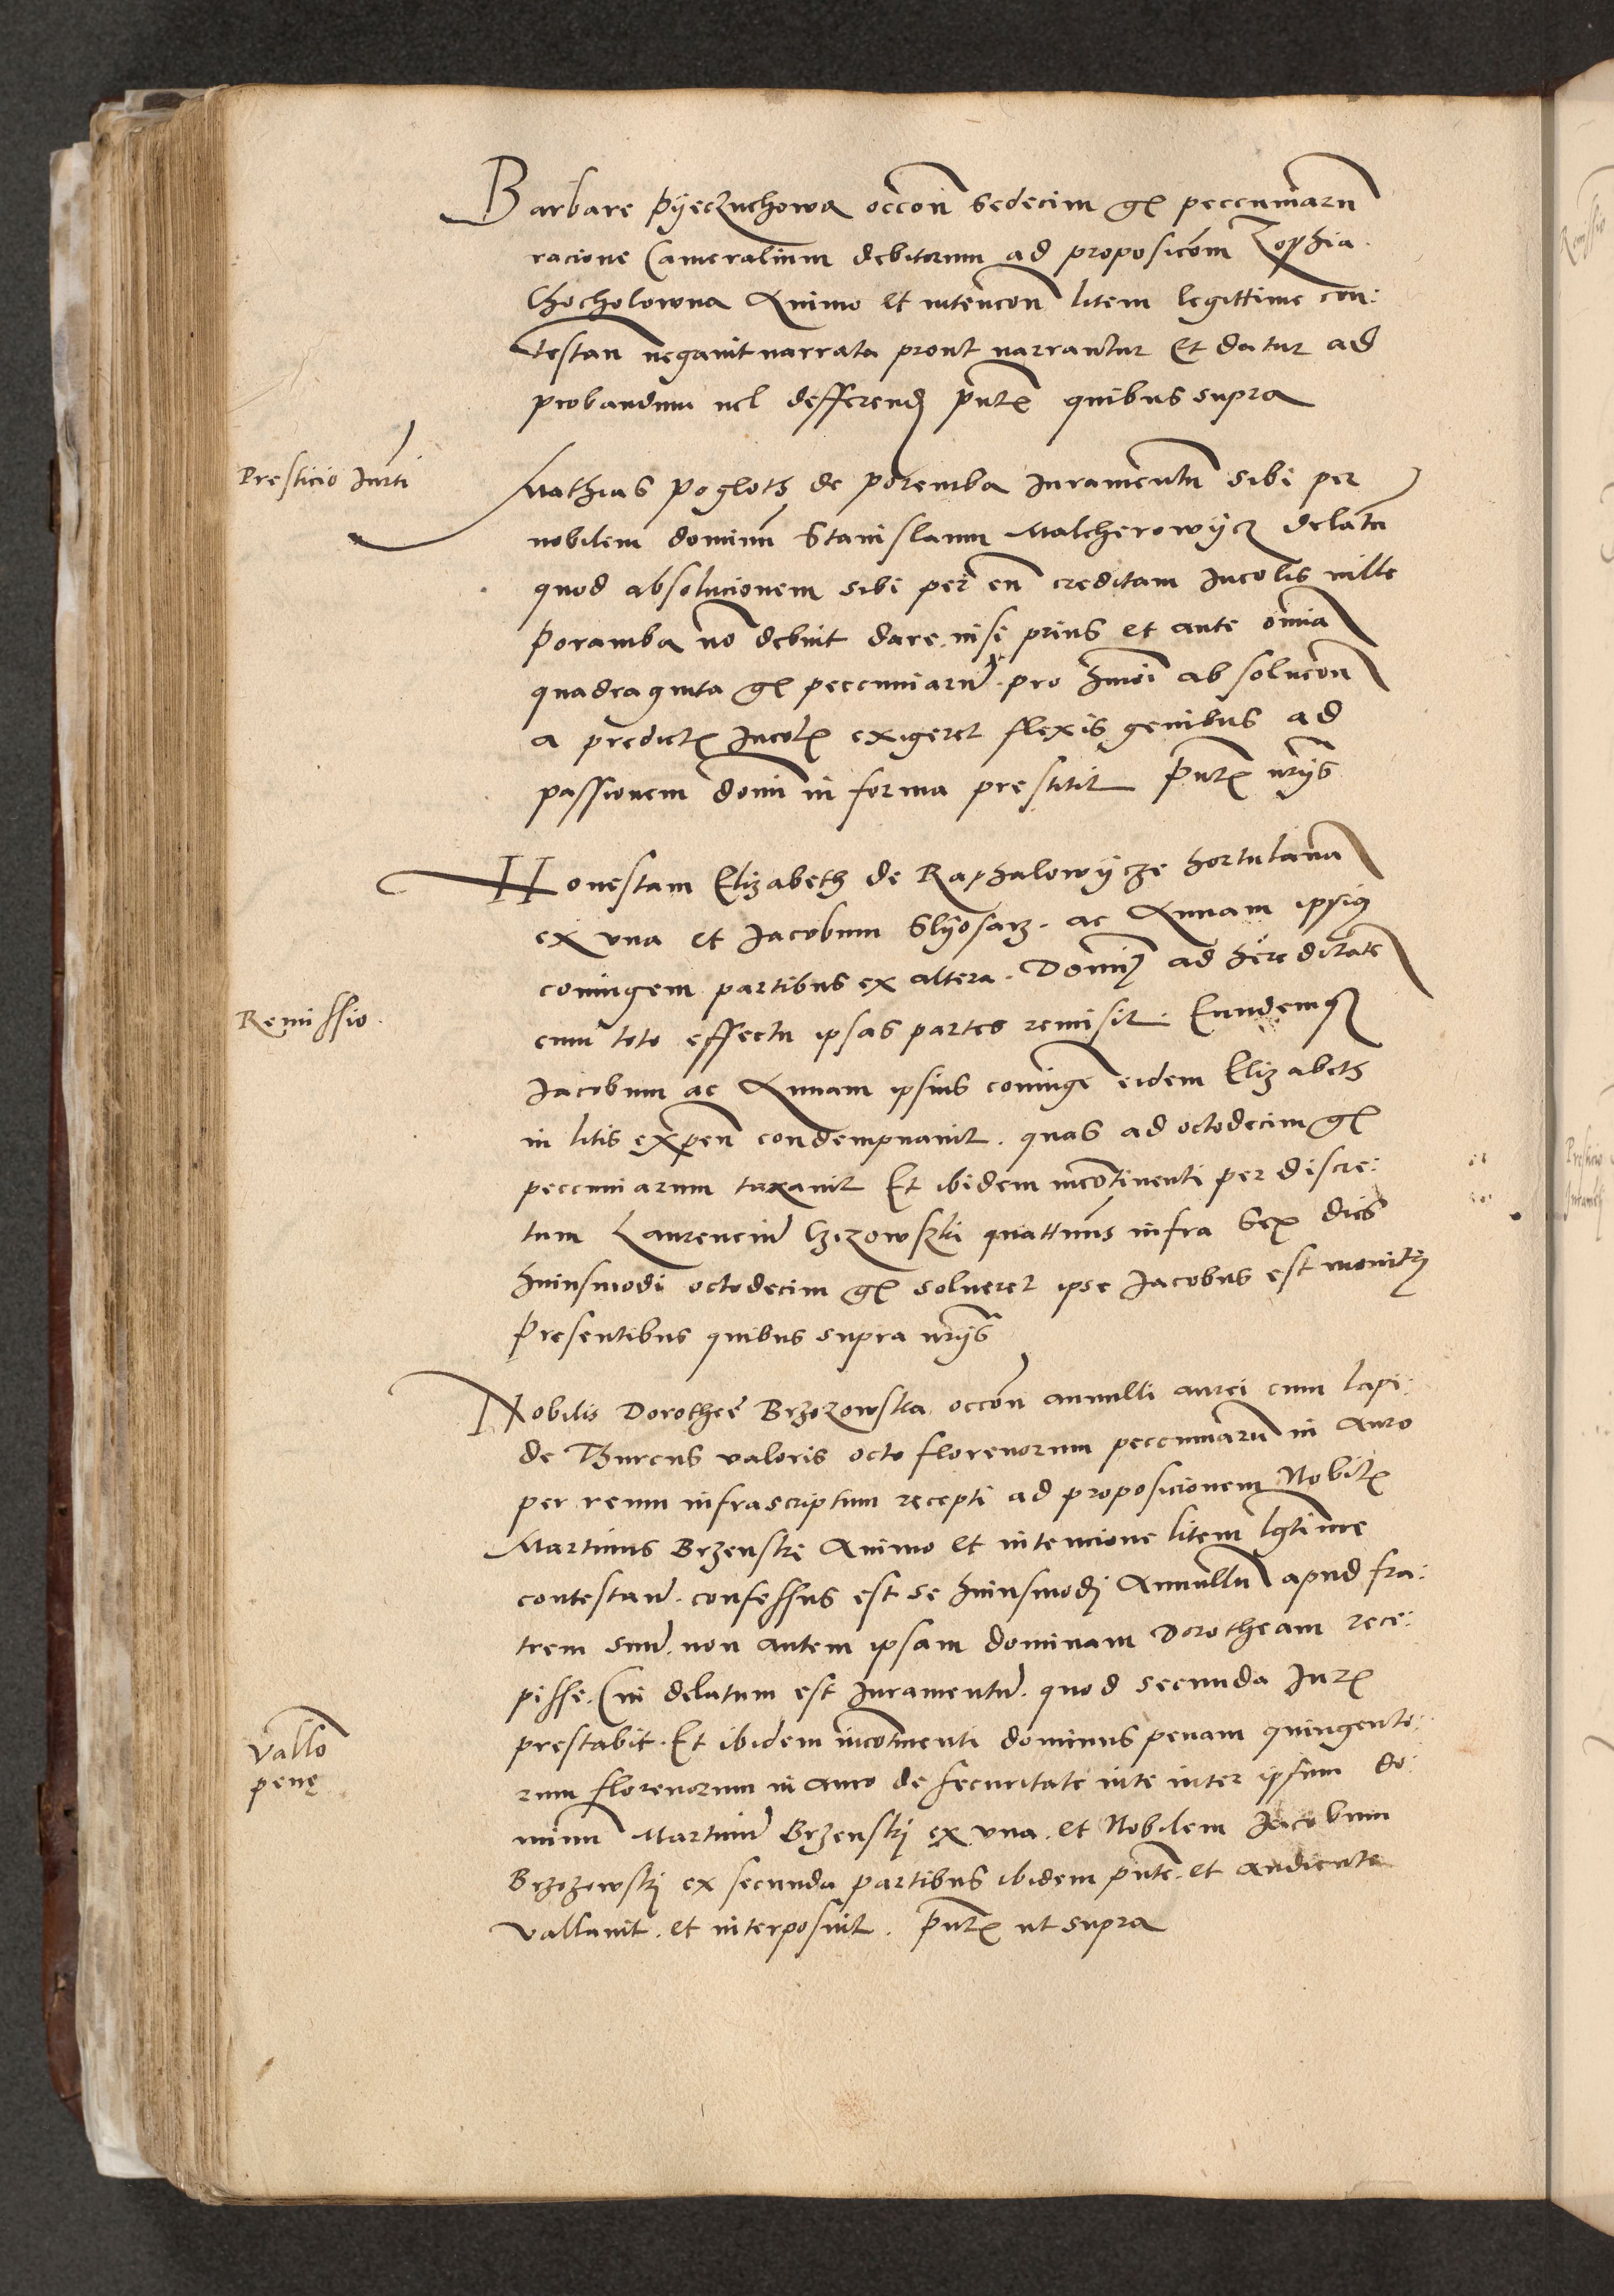 Barbare Pyeczuchowa occōn sedecim gr peccuniarū
racione Cameralium debitorum ad proposicōm Zophia
Chocholowna Animo et intencōn litem legittime con:
testan negavit narrata prout narrantur et datur ad
probandum vel defferend pntᷤ quibus supra
Presticio Iurti
Mathias Pogloth de Poremba Iuramentū sibi per
nobilem dominū Stanislaum Malcherowycz delatū
quod absolucionem sibi per eū creditam Incolis ville
Poramba nō debuit dare nisi prius et ante omīa
quadraginta gr peccuniarū pro hmōi absolucōn
a predictᷤ Incolᷤ exigeret flexis genibus ad
passionem domī in forma prestitit pntᷤ nrijs
Honestam Elizabeth de Raphalowycze hortulanā
ex vna et Jacobum Slyosarz. ac Annam ipsiꝰ
coniugem partibus ex altera. Domiꝰ ad hereditatē
Remissio.
cum toto effectu ipsas partes remisit. Eundemqꝫ
Jacobum ac Annam ipsius coniugē eidem Elizabeth
in litis expen condempnavit. quas ad octodecim gr
peccuniarum taxavit Et ibidem incōtinenti per discre:
tum Laurenciū Czezowski quattinus infra Sex dies
huiusmodi octodecim gr solveret ipse Jacobus est monitꝰ
Presentibus quibus supra nrijs
Nobilis Dorothee Brzozowska occōn annulli aurei cum lapi:
de Thurcus valoris octo florenorum peccuniarū in Auro
per reum infrascriptum recepti ad proposicionem Nobilᷤ
Martinus Brzenski Animo et intencione litem lgtime
contestan. confessus est se huiusmodi Annullū apud fra:
trem suū. non autem ipsam dominam Dorotheam rece:
pisse. Cui delatum est Iuramentū. quod secunda Iurᷤ
Vallo
penę
prestabit. Et ibidem incōtinenti dominus penam quingento:
rum florenorum in auro de securitate vite inter ipsum do:
minū Martinū Brzenski ex vna. et Nobilem Jacobum
Brzozowski ex secunda partibus ibidem pnte. et audiente
vallavit. et interposuit. pntᷤ ut supra